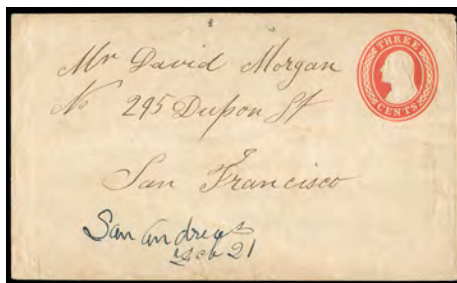 THREE
CENTS
Mr David Morgan
No 295 Dupon St
San Francisco
San Andreas
21